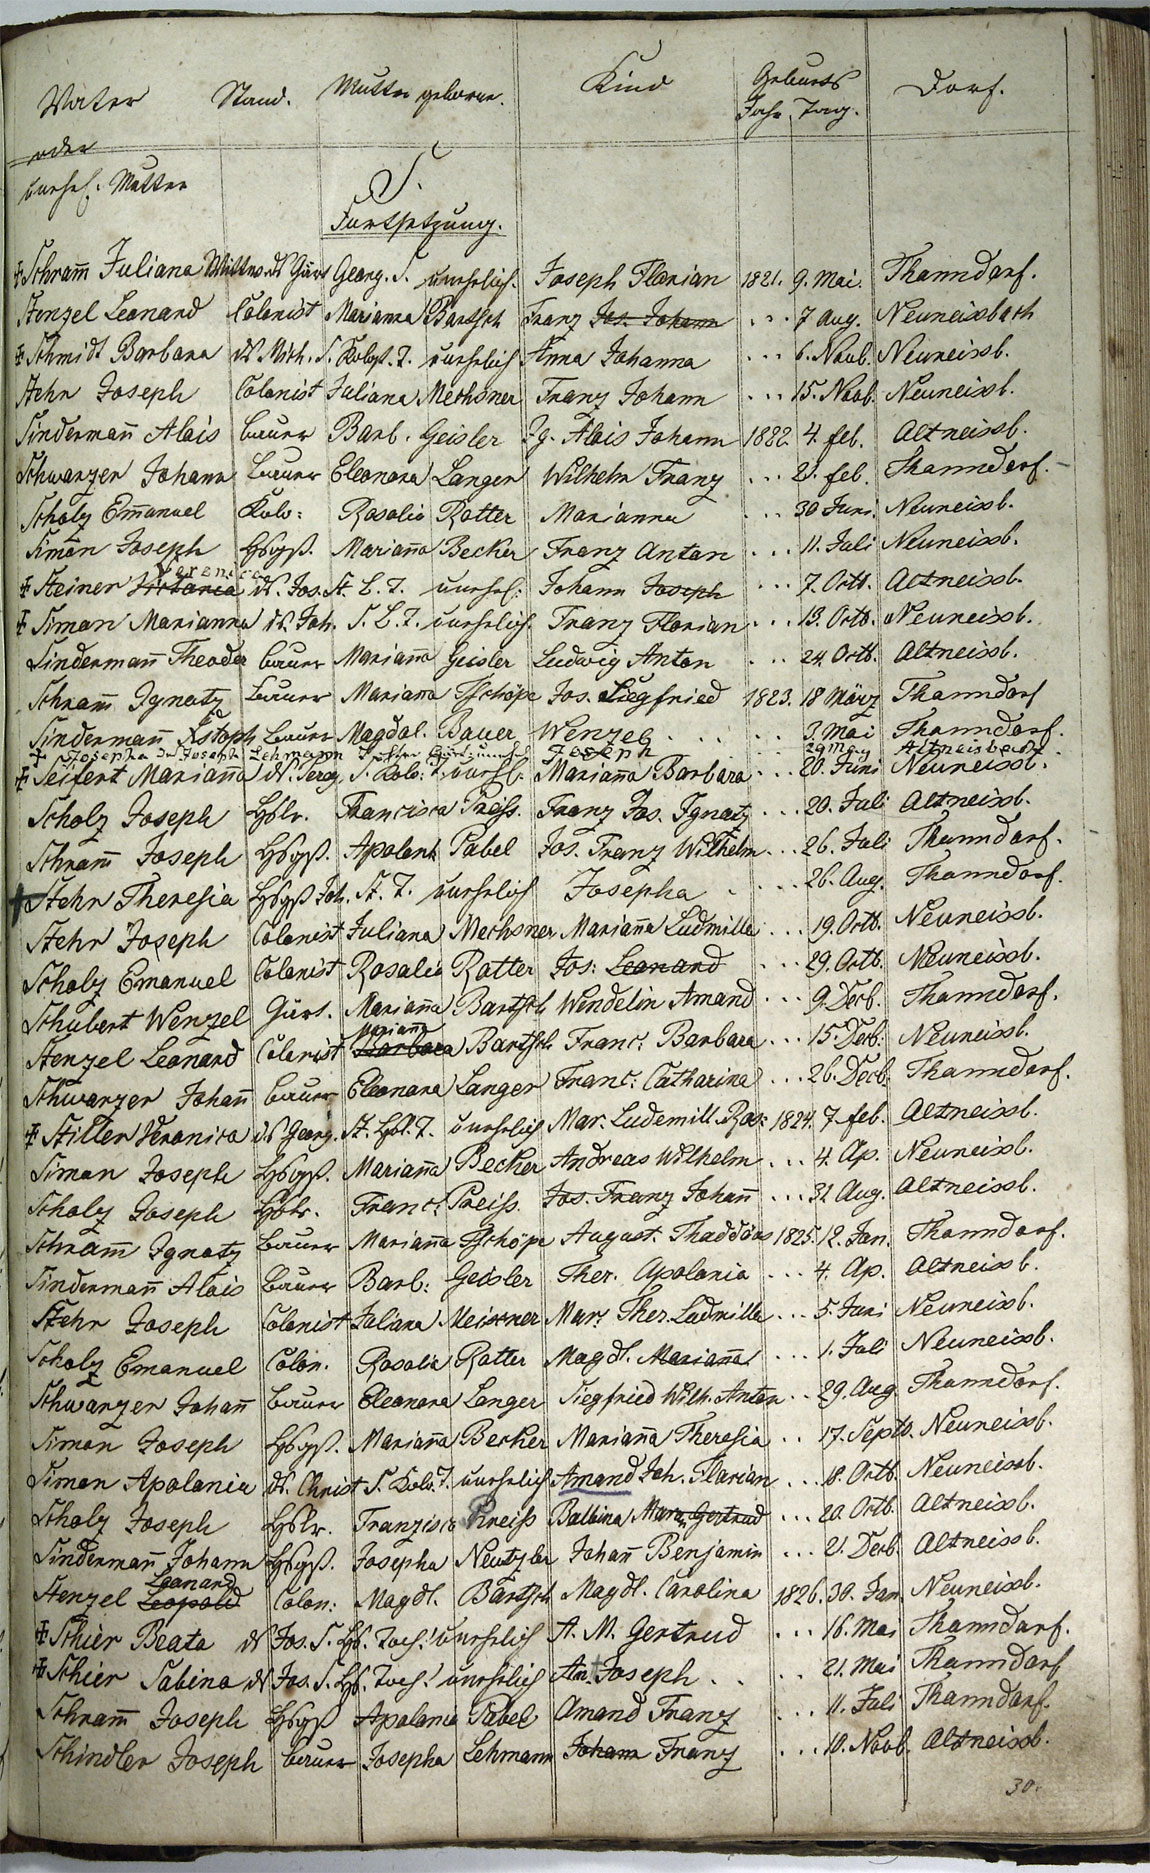 Vater Stand. Mutter geborne. Kind Geburts Dorf.
Jahr. Tag.
oder
unehel. Mutter
S.
Fortsetzung.
‡ Schram̅ Juliana Wittwe ds Gärt Georg. S. unehrlich. Joseph Florian 1821. 9. Mai. Thanndorf.
Stenzel Leonard Colonist Marianna Bartsch Franz Jos. Johann ... 7 Aug. Neuneissbach
‡ Schmidt Barbara ds Mich. S. T. unehrlich Anna Johanna ... 6. Novb. Neuneissb.
Stehr Joseph Colonist Juliana Mechsner Franz Johann ... 15. Novb. Neuneissb.
Sinderman̅ Alois Bauer Barb. Geisler Ig. Alois Johann 1822. 4. feb. Altneissb.
Schwarzer Johann Bauer Eleonora Langer Wilhelm Franz ... 21. feb. Thanndorf.
Scholz Em̅anuel Kolo: Rosalia Rotter Marianna ... 30 Juni. Neuneissb.
Simon Joseph Hsgß. Marian̅a Becker Franz Anton ... 11. Juli Neuneissb.
Veronica
‡ Steiner ds. Jos. St. L. T. unehel: Johann Joseph ... 7. Octb. Altneissb.
‡ Simon Marianna ds. Joh. S. L. T. unehrlich. Franz Florian ... 13. Octb. Neuneissb.
Sinderman̅ Theodor Bauer Marian̅a Geisler Ludwig Anton ... 24. Octb. Altneissb.
Schram̅ Ignatz Bauer Marianna Tschöpe Jos. Siegfried 1823. 18 März Thanndorf
Sinderman̅ Xstoph Bauer Magdal. Bauer Wenzel ... 3. Mai Thanndorf.
+ Josepha des Joseph Lehmann Tochter Joseph 29 May Altneisbach.
‡ Seifert Marian̅a ds. S. Kolo: T. unehl. Marian̅a Barbara ... 20. Juni Neuneissb.
Scholz Joseph Hslr. Francisca Preiss. Franz Jos. Ignatz ... 20. Juli Altneissb.
Schram̅ Joseph Hsgß. Apolonia Pabel Jos. Franz Wilhelm ... 26. Juli Thanndorf.
+ Stehr Theresia Hsgß Joh. St. T. unehrlich Josepha ... 26. Aug. Thanndorf.
Stehr Joseph Colonist Juliana Mechsner Marian̅a Ludmilla ... 19. Octb. Neuneissb.
Scholz Emanuel Colonist Rosalia Rotter Jos: Leonard ... 29. Octb. Neuneissb.
Schubert Wenzel Gärt. Marian̅a Bartsch Wendelin Amand ... 9. Decb. Thanndorf.
Marian̅a
Stenzel Leonard Colonist Barbara Bartsch Franc: Barbara ... 15. Decb. Neuneissb.
Schwarzer Johan̅ Bauer Eleonora Langer Franc: Catharina ... 26. Decb. Thanndorf.
‡ Stiller Veronica ds Georg. St. Hsl. T. unehrlich Mar. Ludemill. Ros: 1824. 7. feb. Altneissb.
Simon Joseph Hsgß. Marian̅a Becker Andreas Wilhelm ... 4. Ap. Neuneissb.
Scholz Joseph Hslr. Franc: Preiss. Jos. Franz Johan̅ ... 31. Aug. Altneissb.
Schram̅ Ignatz Bauer Marianna Tschöpe August. Thaddäus 1825. 12. Jan. Thanndorf.
Sinderman̅ Alois Bauer Barb: Geisler Ther. Apolonia ... 4. Ap. Altneissb.
Stehr Joseph Colonist Juliana Meixner Mar: Ther. Ludmilla ... 5. Juni Neuneissb.
Scholz Emanuel Colon. Rosalia Rotter Magdl. Marian̅a. ... 1. Juli Neuneissb.
Schwarzer Johan̅ Bauer Eleonora Langer Siegfried Wilh. Anton .. 29. Aug. Thanndorf.
Simon Joseph Hsgß. Marian̅a Becker Marian̅a Theresia .. 17. Septb. Neuneissb.
Simon Apolonia ds. Christ S. Kolo. T. unehrlich Amand Joh. Florian ... 18. Octb. Neuneissb.
Scholz Joseph Hslr. Franzisca Preiss Balbina Mar. Gertrud ... 20. Octb. Altneissb.
Sinderman̅ Johann Hsgß. Josepha Neutzler Johan̅ Benjamin ... 21. Decb. Altneissb.
Leonard
Stenzel Leopold Colon: Magdl. Bartsch Magdl. Carolina 1826. 30. Jan. Neuneissb.
‡ Schier Beata ds Jos. S. Hs. Toch. unehrlich A. M. Gertrud ... 16. Mai Thanndorf.
‡ Schier Sabina ds Jos. S. Hs. Toch. unehrlich Joseph .. .. 21. Mai Thanndorf
Schram̅ Joseph Hsgß Apolonia Pabel Amand Franz ... 11. Juli Thanndorf.
Schindler Joseph Bauer Josepha Lehmann Johann Franz ... 10. Novb. Altneissb.
30.